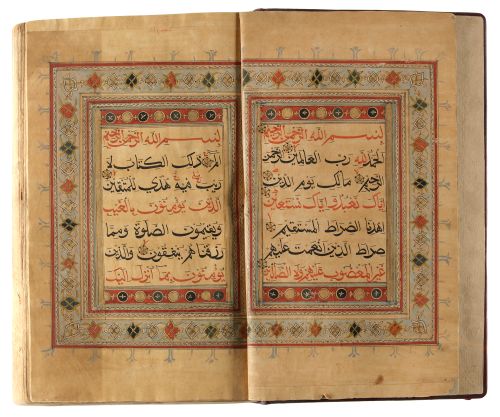 بسم الله الرحمن الرحيم
الحمد لله رب العالمين الرحمن
الرحيم مالك يوم الدين
اياك نعبد و اياك نستعين
اهدنا الصراط المستقيم
صراط الذين انعمت عليهم
غير المغضوب عليهم ولا الضالين
بسم الله الرحمن الرحيم
الم ذلك الكتاب لا
ريب فيه هدى للمتقين
الذين يومنون بالغيب
ويقيمون الصلوة ومما
رزقناهم ينفقون والذين
يومنون بما انزل اليك